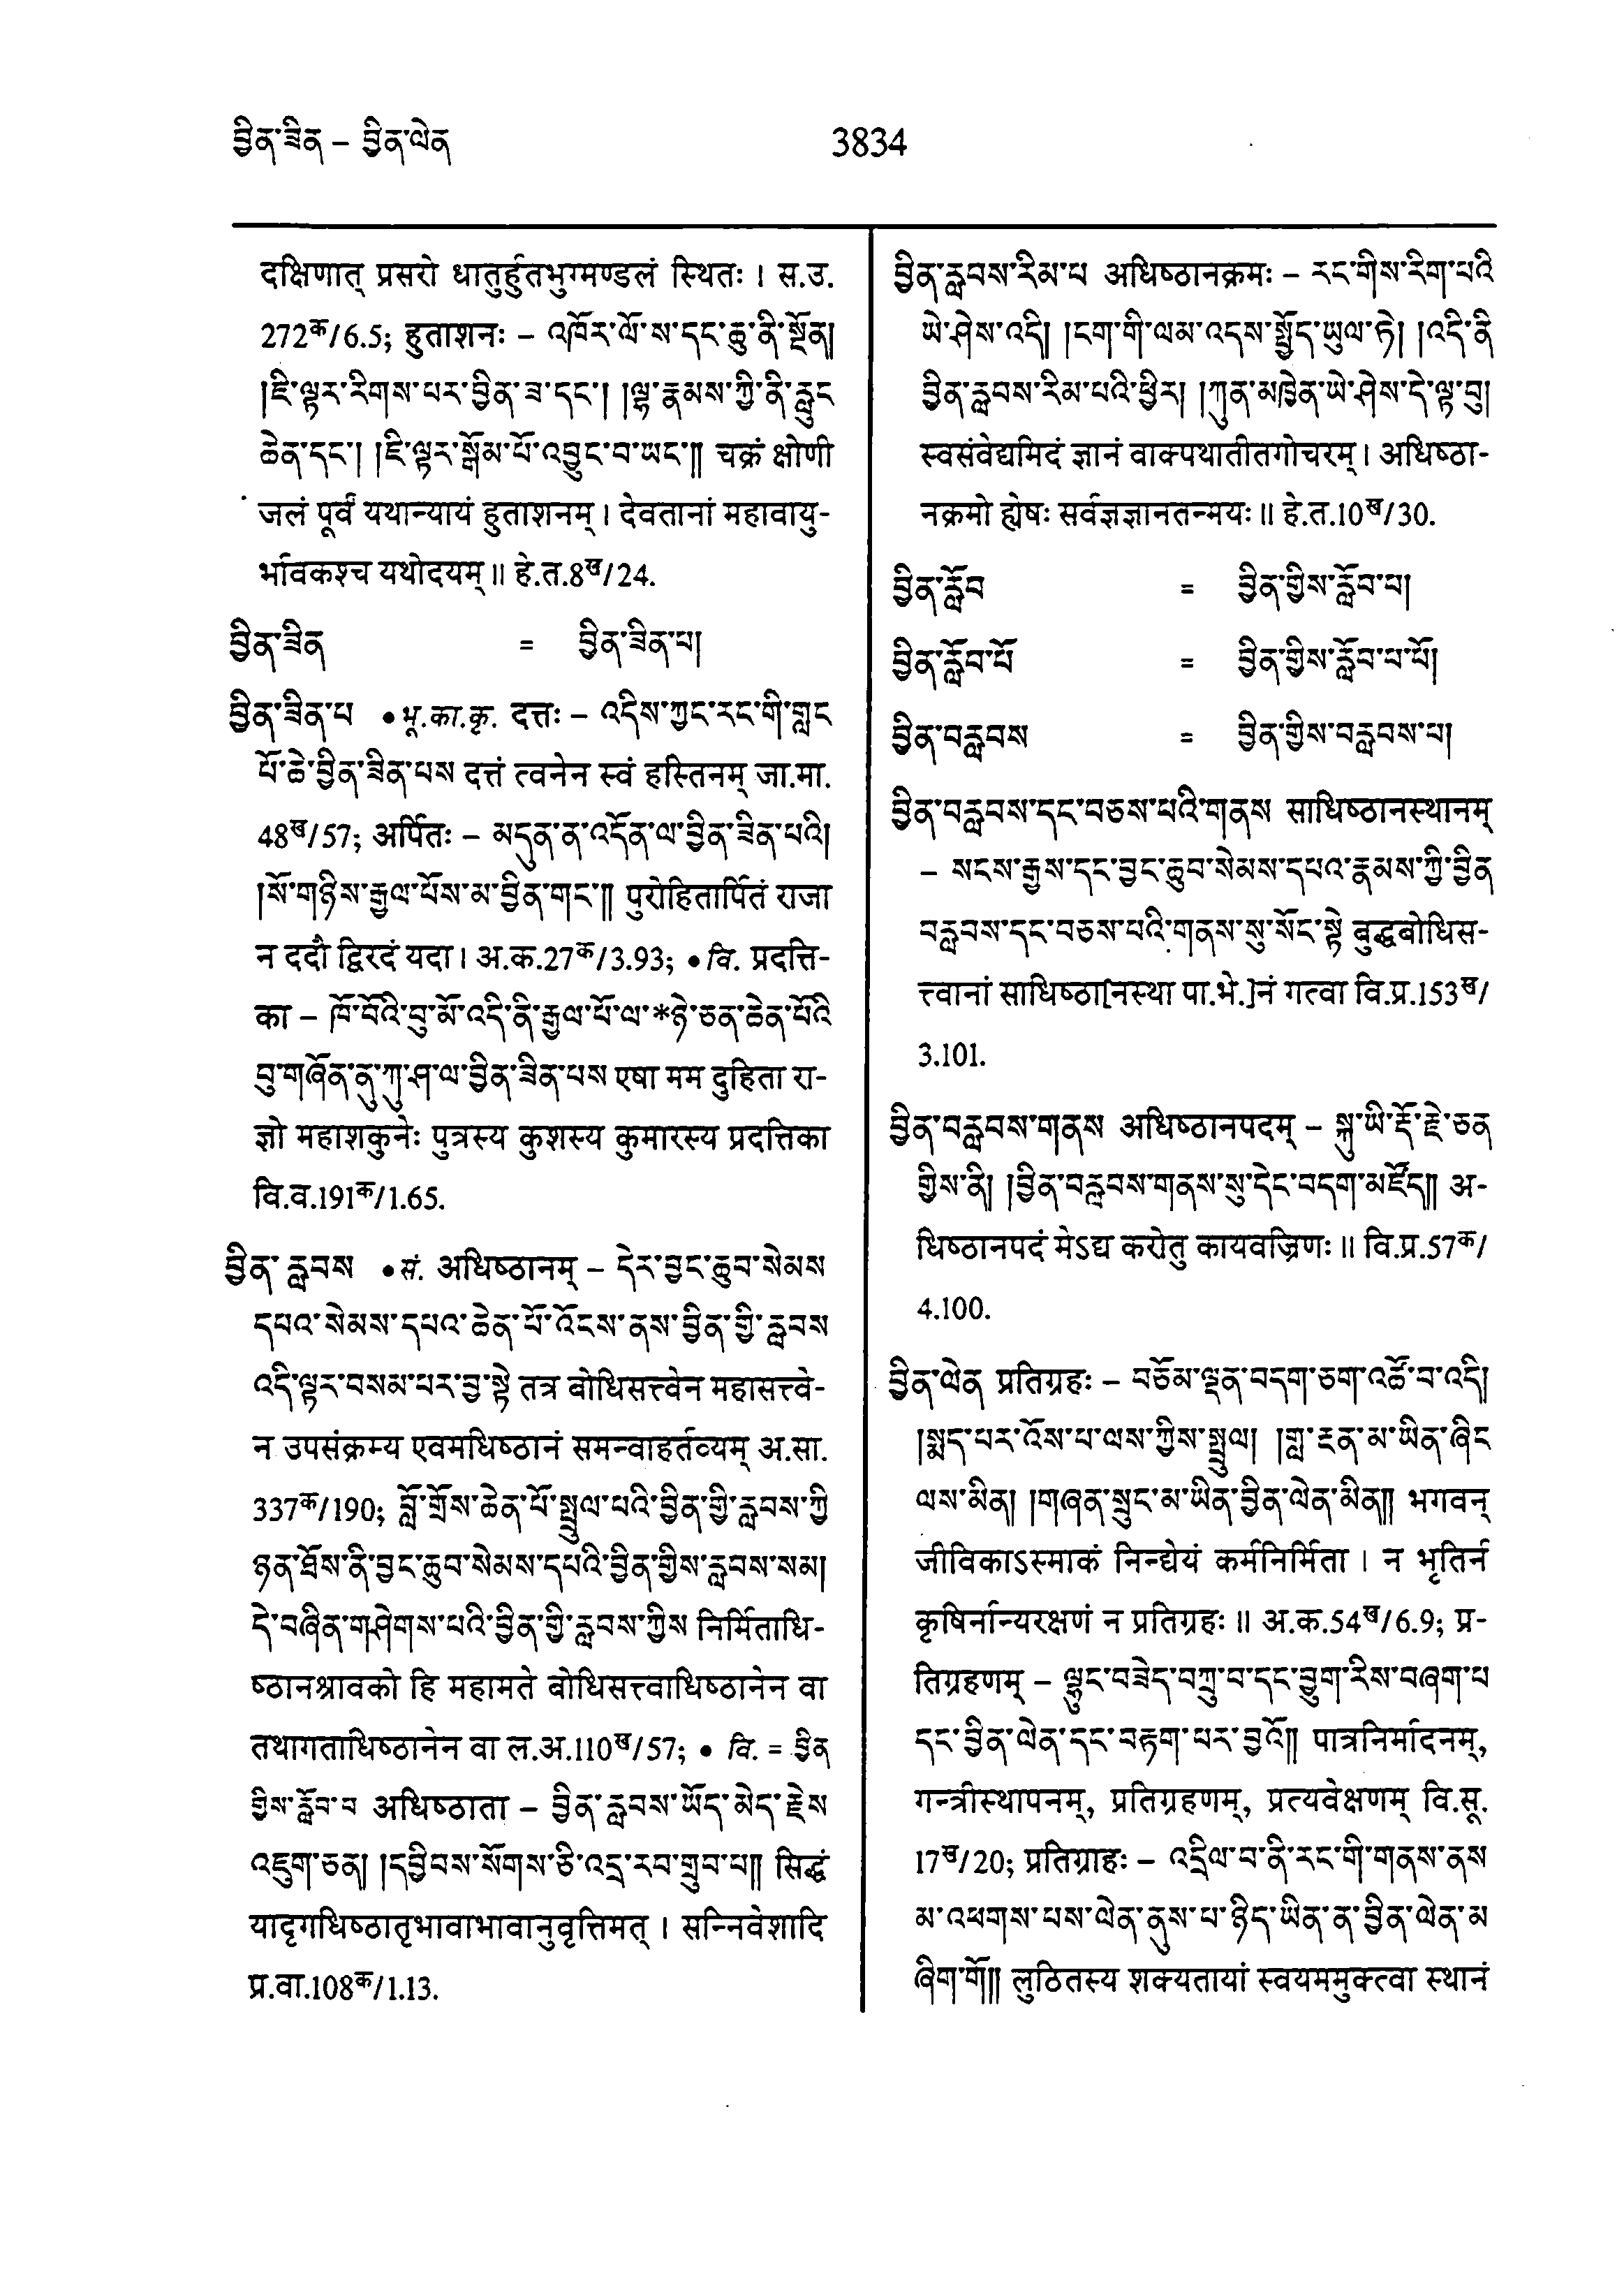 བྱིན་ཟིན – བྱིན་ལེན
3834
दक्षिणात् प्रसरो धातुर्हुतभुग्मण्डलं स्थितः । स.उ.
272क/6.5; हुताशनः – འཁོར་ལོ་ས་དང་ཆུ་ནི་སྔོན།
།ཇི་ལྟར་རིགས་པར་བྱིན་ཟ་དང་། །ལྷ་རྣམས་ཀྱི་ནི་རླུང
ཆེན་དང་། །ཇི་ལྟར་སྒོམ་པོ་འབྱུང་བ་ཡང་༎ चक्रं क्षोणी
जलं पूर्वं यथान्यायं हुताशनम् । देवतानां महावायु-
र्भावकश्च यथोदयम् ॥ हे.त.8ख/24.
བྱིན་ཟིན = བྱིན་ཟིན་པ།
བྱིན་ཟིན་པ • भू.का.कृ. दत्तः – འདིས་ཀྱང་རང་གི་གླང
པོ་ཆེ་བྱིན་ཟིན་པས दत्तं त्वनेन स्वं हस्तिनम् जा.मा.
48ख/57; अर्पितः – མདུན་ན་འདོན་ལ་བྱིན་ཟིན་པའི།
།སོ་གཉིས་རྒྱལ་པོས་མ་བྱིན་གང་༎ पुरोहितार्पितं राजा
न ददौ द्विरदं यदा । अ.क.27क/3.93; • वि. प्रदत्ति-
का – ཁོ་བོའི་བུ་མོ་འདི་ནི་རྒྱལ་པོ་ལ་*ཉེ་ཅན་ཆེན་པོའི
བུ་གཞོན་ནུ་ཀུ་ཤ་ལ་བྱིན་ཟིན་པས एषा मम दुहिता रा-
ज्ञो महाशकुनेः पुत्रस्य कुशस्य कुमारस्य प्रदत्तिका
वि.व.191क/1.65.
བྱིན་རླབས • सं. अधिष्ठानम् – དེར་བྱང་ཆུབ་སེམས
དཔའ་སེམས་དཔའ་ཆེན་པོ་འོངས་ནས་བྱིན་གྱི་རླབས
འདི་ལྟར་བསམ་པར་བྱ་སྟེ तत्र बोधिसत्त्वेन महासत्त्वे-
न उपसंक्रम्य एवमधिष्ठानं समन्वाहर्तव्यम् अ.सा.
337क/190; བློ་གྲོས་ཆེན་པོ་སྤྲུལ་པའི་བྱིན་གྱི་རླབས་ཀྱི
ཉན་ཐོས་ནི་བྱང་ཆུབ་སེམས་དཔའི་བྱིན་གྱིས་རླབས་སམ།
དེ་བཞིན་གཤེགས་པའི་བྱིན་གྱི་རླབས་ཀྱིས निर्मिताधि-
ष्ठानश्रावको हि महामते बोधिसत्त्वाधिष्ठानेन वा
तथागताधिष्ठानेन वा ल.अ.110ख/57; • वि. = བྱིན
གྱིས་རློབ་པ अधिष्ठाता – བྱིན་རླབས་ཡོད་མེད་རྗེས
འཇུག་ཅན། །དབྱིབས་སོགས་ཅི་འདྲ་རབ་གྲུབ་པ༎ सिद्धं
यादृगधिष्ठातृभावाभावानुवृत्तिमत् । सन्निवेशादि
प्र.वा.108क/1.13.
བྱིན་རླབས་རིམ་པ अधिष्ठानक्रमः – རང་གིས་རིག་པའི
ཡེ་ཤེས་འདི། །ངག་གི་ལམ་འདས་སྤྱོད་ཡུལ་ཏེ། །འདི་ནི
བྱིན་རླབས་རིམ་པའི་ཕྱིར། །ཀུན་མཁྱེན་ཡེ་ཤེས་དེ་ལྟ་བུ།
स्वसंवेद्यमिदं ज्ञानं वाक्पथातीतगोचरम् । अधिष्ठा-
नक्रमो ह्येषः सर्वज्ञज्ञानतन्मयः ॥ हे.त.10ख/30.
བྱིན་རློབ = བྱིན་གྱིས་རློབ་པ།
བྱིན་རློབ་པོ = བྱིན་གྱིས་རློབ་པ་པོ།
བྱིན་བརླབས = བྱིན་གྱིས་བརླབས་པ།
བྱིན་བརླབས་དང་བཅས་པའི་གནས साधिष्ठानस्थानम्
– སངས་རྒྱས་དང་བྱང་ཆུབ་སེམས་དཔའ་རྣམས་ཀྱི་བྱིན
བརླབས་དང་བཅས་པའི་གནས་སུ་སོང་སྟེ बुद्धबोधिस-
त्त्वानां साधिष्ठा[नस्था पा.भे.]नं गत्वा वि.प्र.153ख/
3.101.
བྱིན་བརླབས་གནས अधिष्ठानपदम् – སྐུ་ཡི་རྡོ་རྗེ་ཅན
གྱིས་ནི། །བྱིན་བརླབས་གནས་སུ་དེང་བདག་མཛོད༎ अ-
धिष्ठानपदं मेऽद्य करोतु कायवज्रिणः ॥ वि.प्र.57क/
4.100.
བྱིན་ལེན प्रतिग्रहः – བཅོམ་ལྡན་བདག་ཅག་འཚོ་བ་འདི།
།སྨད་པར་འོས་པ་ལས་ཀྱིས་སྤྲུལ། །གླ་རྔན་མ་ཡིན་ཞིང
ལས་མིན། །གཞན་སྲུང་མ་ཡིན་བྱིན་ལེན་མིན༎ भगवन्
जीविकाऽस्माकं निन्द्येयं कर्मनिर्मिता । न भृतिर्न
कृषिर्नान्यरक्षणं न प्रतिग्रहः ॥ अ.क.54ख/6.9; प्र-
तिग्रहणम् – ལྷུང་བཟེད་བཀྲུ་བ་དང་བྱུག་རིས་བཞག་པ
དང་བྱིན་ལེན་དང་བརྟག་པར་བྱའོ༎ पात्रनिर्मादनम्,
गन्त्रीस्थापनम्, प्रतिग्रहणम्, प्रत्यवेक्षणम् वि.सू.
17ख/20; प्रतिग्राहः – འདྲིལ་བ་ནི་རང་གི་གནས་ནས
མ་འཕགས་པས་ལེན་ནུས་པ་ཉིད་ཡིན་ན་བྱིན་ལེན་མ
ཞིག་གོ༎ लुठितस्य शक्यतायां स्वयममुक्त्वा स्थानं